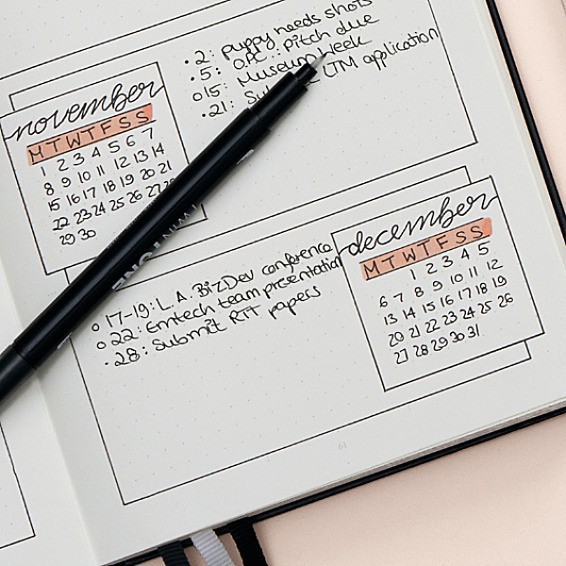 • 2: puppy needs shots
• 5: O.P.C.: pitch due
o 15: Museum Week
• 21: LTM application
november
M T W T F S S
1 2 3 4 5 6 7
8 9 10 11 12 13 14
15 16 17 18 19 20 21
22 23 24 25 26 27 28
29 30
o 17-19: L.A. BizDev conference
o 22: Emtech team presentation
• 28: Submit papers
december
M T W T F S S
1 2 3 4 5
6 7 8 9 10 11 12
13 14 15 16 17 18 19
20 21 22 23 24 25 26
27 28 29 30 31
61